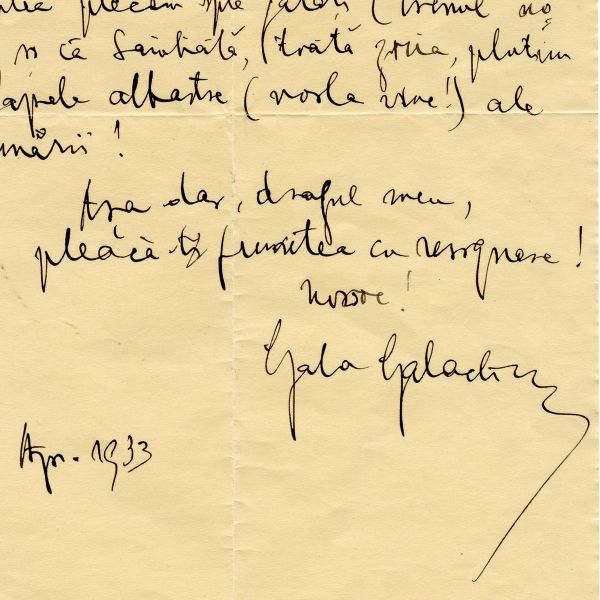 plecăm spre Galați (trenul
și că Sâmbătă, (toată ziua, plutim
apele albastre (vorba vine!) ale
unării!
Așa dar, dragul meu,
pleacă-ți fruntea cu resignare!
Noroc!
Gala Galaction
Apr. 1933